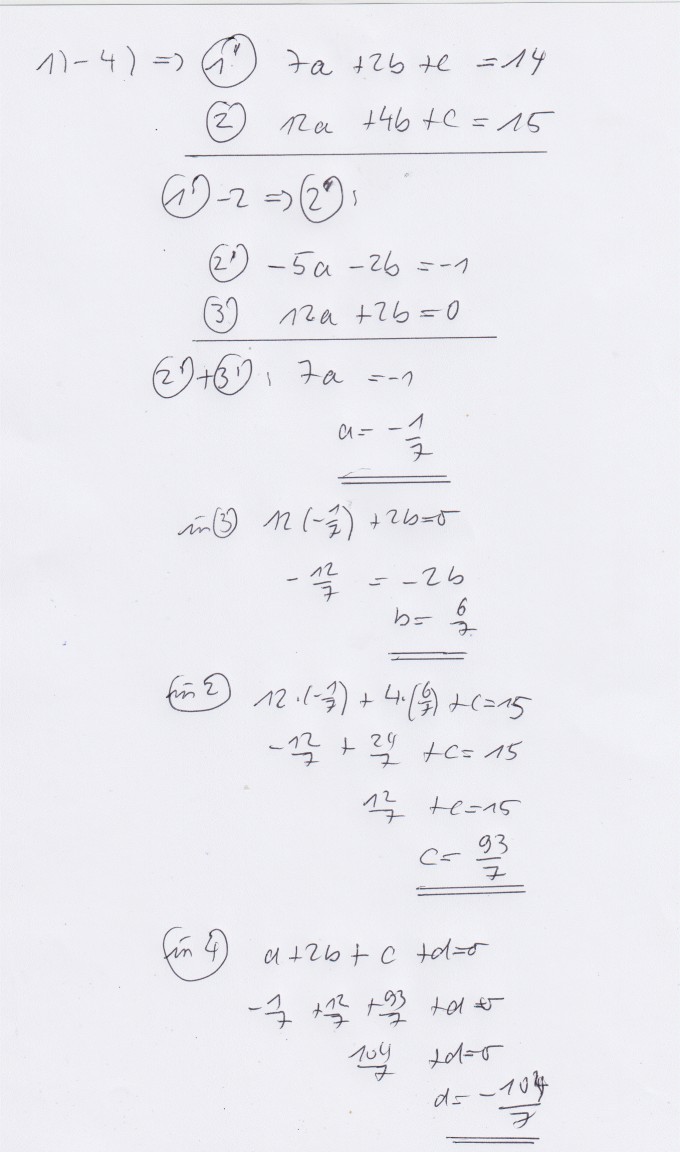 1) - 4) => 1' 7a + 2b + c = 14
2 12a + 4b + c = 15
1' - 2 => 2':
2' -5a - 2b = -1
3' 12a + 2b = 0
2' + 3': 7a = -1
a = -1/7
in 3' 12(-1/7) + 2b = 0
-12/7 = -2b
b = 6/7
in 2 12·(-1/7) + 4·(6/7) + c = 15
-12/7 + 24/7 + c = 15
12/7 + c = 15
c = 93/7
in 4 a + 2b + c + d = 0
-1/7 + 12/7 + 93/7 + d = 0
104/7 + d = 0
d = -104/7